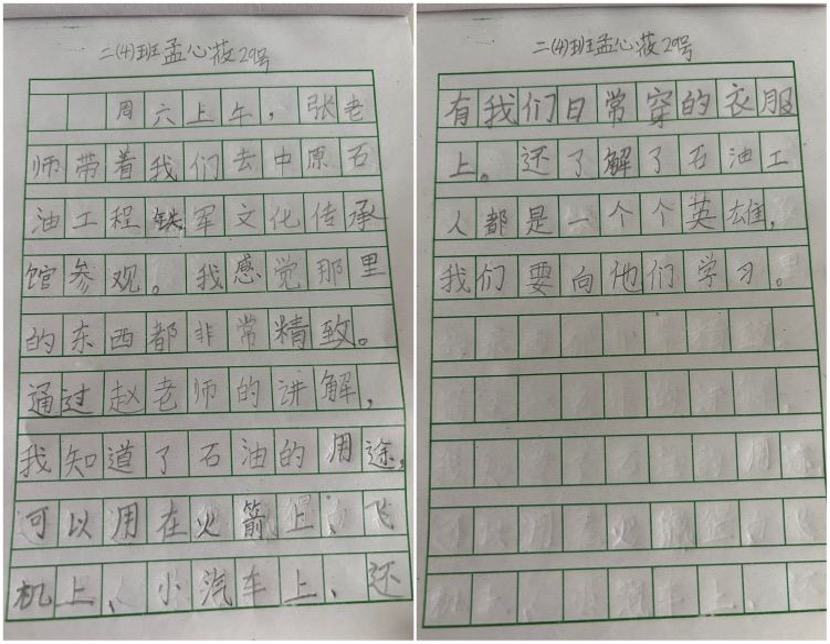 二(4)班孟心莜29号
周六上午，张老
师带着我们去中原石
油工程铁军文化传承
馆参观。我感觉那里
的东西都非常精致。
通过赵老师的讲解，
我知道了石油的用途，
可以用在火箭上、飞
机上、小汽车上、还
二(4)班孟心莜29号
有我们日常穿的衣服
上。还了解了石油工
人都是一个个英雄，
我们要向他们学习。